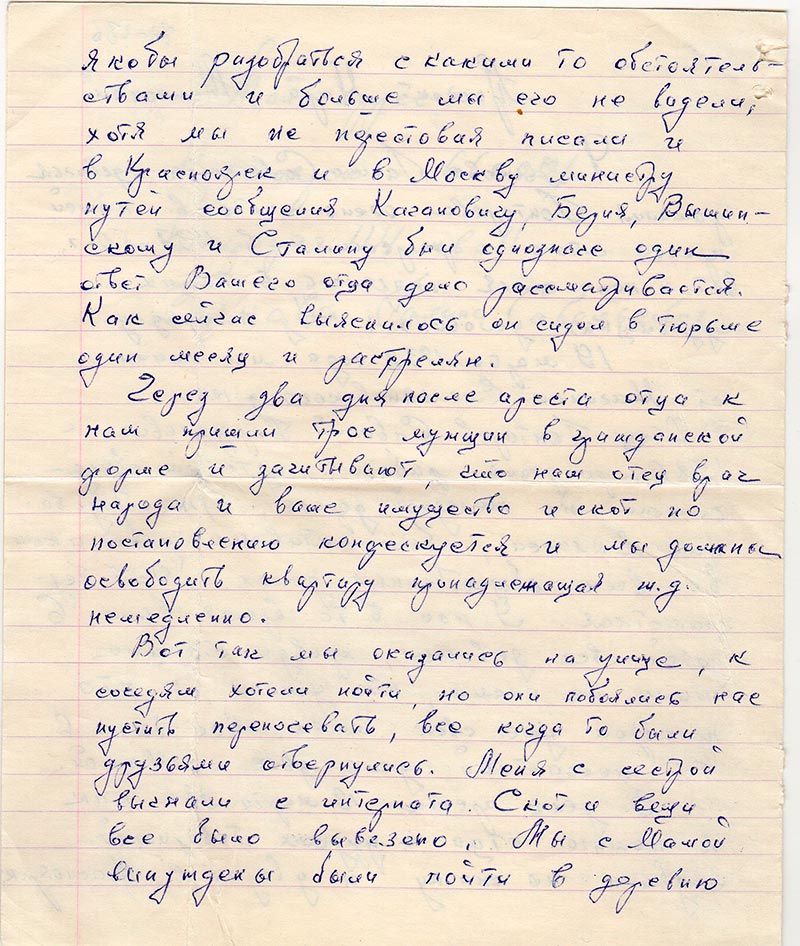 якобы разобраться с какими то обстоятель-
ствами и больше мы его не видели,
хотя мы не перестовая писали и
в Красноярск и в Москву министру
путей сообщения Кагановичу, Берия, Вышин-
скому и Сталину был однозначе один
ответ Вашего отца дело рассматривается.
Как сейчас выяснилось он сидел в тюрьме
один месяц и растрелян.
Через два дня после ареста отца к
нам пришли трое мужщин в гражданской
форме и зачитывают, что наш отец враг
народа и ваше имущество и скот по
постановлению конфескуется и мы должны
освободить квартиру пренадлежащая ж.д.
немедленно.
Вот так мы оказались на улице, к
соседям хотели пойти, но они побоялись нас
пустить переночевать, все когда то были
друзьями отвернулись. Меня с сестрой
выгнали с интерната. Скот и вещи
все было вывезено. Мы с Мамой
вынуждены были пойти в деревню